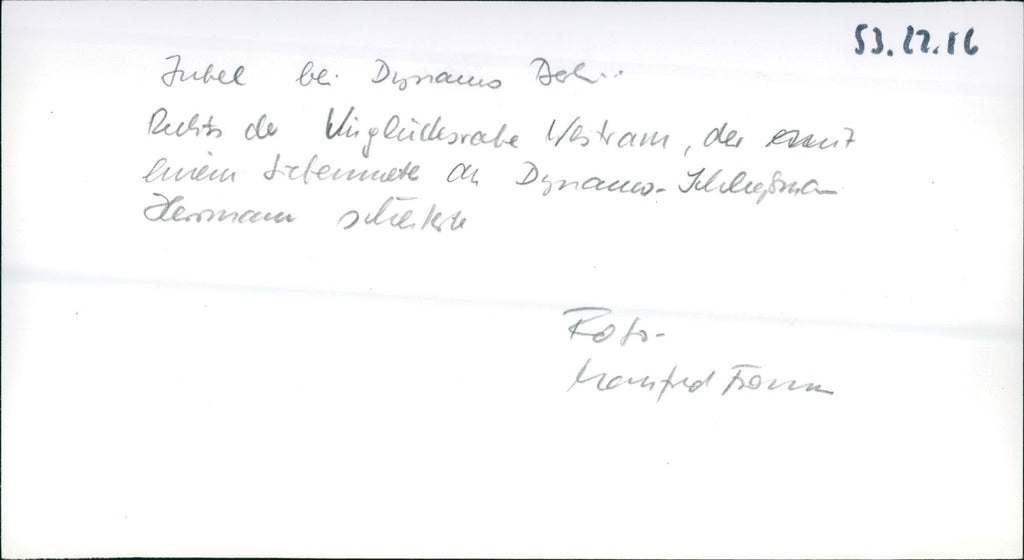 53.22.16
Jubel bei Dynamo
Rechts der Unglücksrabe Westram, der
einem Siebenmeter an Dynamo-Schlußmann
Herrmann scheiterte
Foto-
Manfred